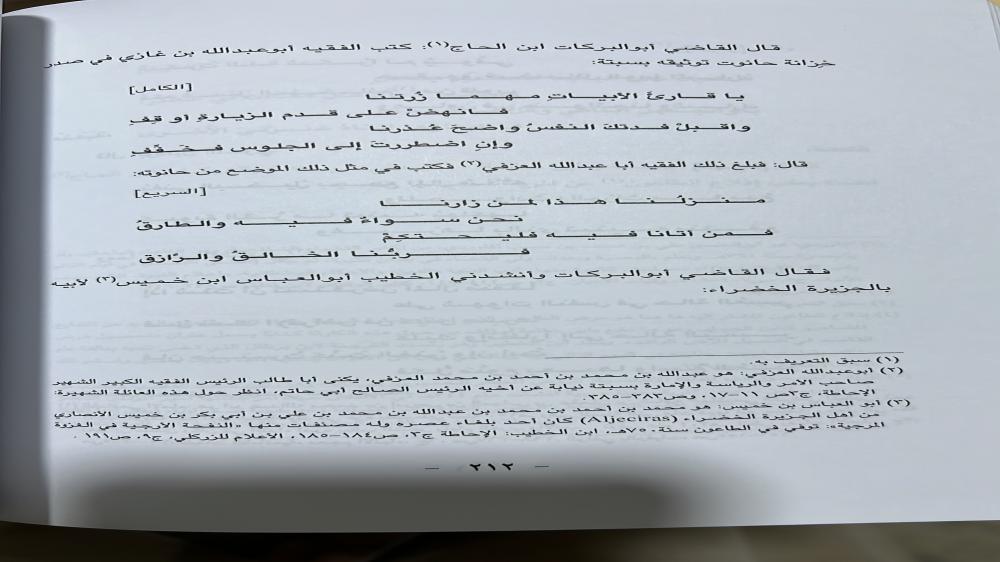 قال القاضي أبوالبركات ابن الحاج(١): كتب الفقيه أبوعبدالله بن غازي في صدر
خِزانة حانوت توثيقه بسبتة:
[الكامل]
يا قارئَ الأبيـاتِ مهما زُرتنا
فانهضْ على قدم الزيارةِ أو قِفِ
واقبلْ فدتكَ النفسُ واضحَ عُذرنا
وإن اضطررتَ إلى الجلوس فخفِّفِ
قال: فبلغ ذلك الفقيه أبا عبدالله العزفي(٢) فكتب في مثل ذلك الموضع من حانوته:
[السريع]
منزلُنا هذا لمن زارنا
نحن سواءٌ فيه والطارقُ
فمن أتانا فيه فليحتكمْ
فربُّنا الخالقُ والرّازق
فقال القاضي أبوالبركات وأنشدني الخطيب أبوالعباس ابن خميس(٣) لأبيه
بالجزيرة الخضراء:
(١) سبق التعريف به.
(٢) أبوعبدالله العزفي: هو عبدالله بن محمد بن أحمد بن محمد العزفي، يكنى أبا طالب الرئيس الفقيه الكبير الشهير
صاحب الأمر والرياسة والإمارة بسبتة نيابة عن أخيه الرئيس الصالح أبي حاتم، انظر حول هذه العائلة الشهيرة:
الإحاطة، ج٣ص ١١–١٧، وص٣٨٣–٣٨٥.
(٣) أبو العباس بن خميس: هو محمد بن أحمد بن محمد بن عبدالله بن محمد بن علي بن أبي بكر بن خميس الأنصاري
من أهل الجزيرة الخضراء (Aljeciras) كان أحد بلغاء عصره وله مصنفات منها «النفحة الأرجية في الغزوة
المرجية»: توفي في الطاعون سنة، ٧٥٠هـ، ابن الخطيب: الإحاطة ج٣، ص١٨٤–١٨٥، الأعلام للزركلي، ج٩، ص١٩١.
– ٢١٢ –